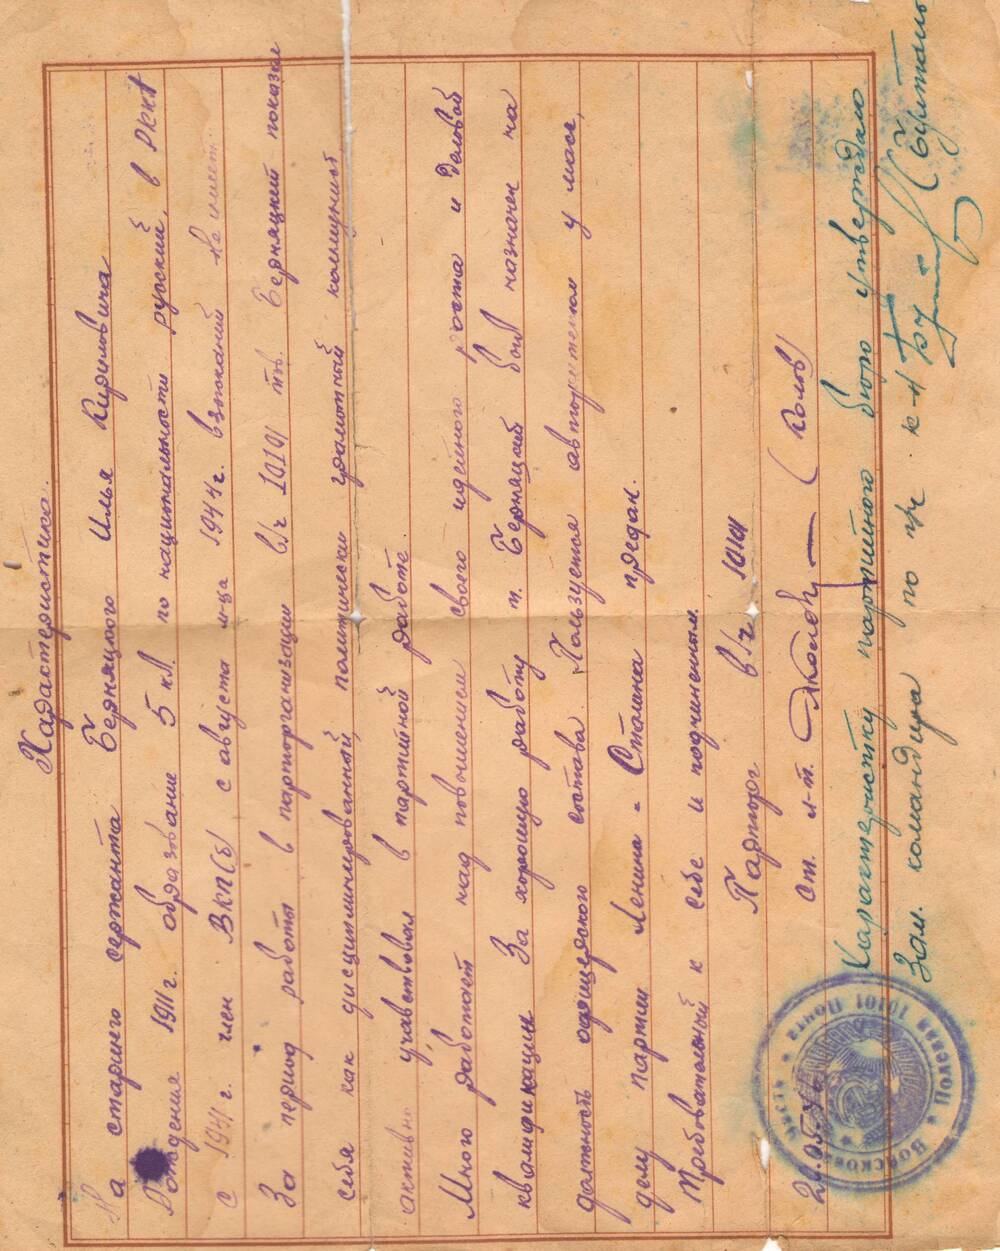 Характеристика.
На старшего сержанта Берняцкого Илья Кириловича
Рождения 1911 г. образование 5 кл. по национальности русский, в РККА
с 1941 г. член ВКП(б) с августа м-ца 1944 г. взысканий не имеет.
За период работы в парторганизации в/ч 10101 тов. Берняцкий показал
себя как дисциплинированный, политически грамотный коммунист,
активно учавствовал в партийной работе.
Много работает над повышением своего идейного роста и деловой
квалификации За хорошую работу т. Берняцкий был назначен на
должность офицерского состава. Пользуется авторитетом у масс,
делу партии Ленина - Сталина предан.
Требовательный к себе и подчиненным.
Парторг в/ч 10101
ст. л-т. (Колов)
Характеристику партийного бюро утверждало
Зам. командира по п/ч к-н
Войсковая Часть Полевая Почта